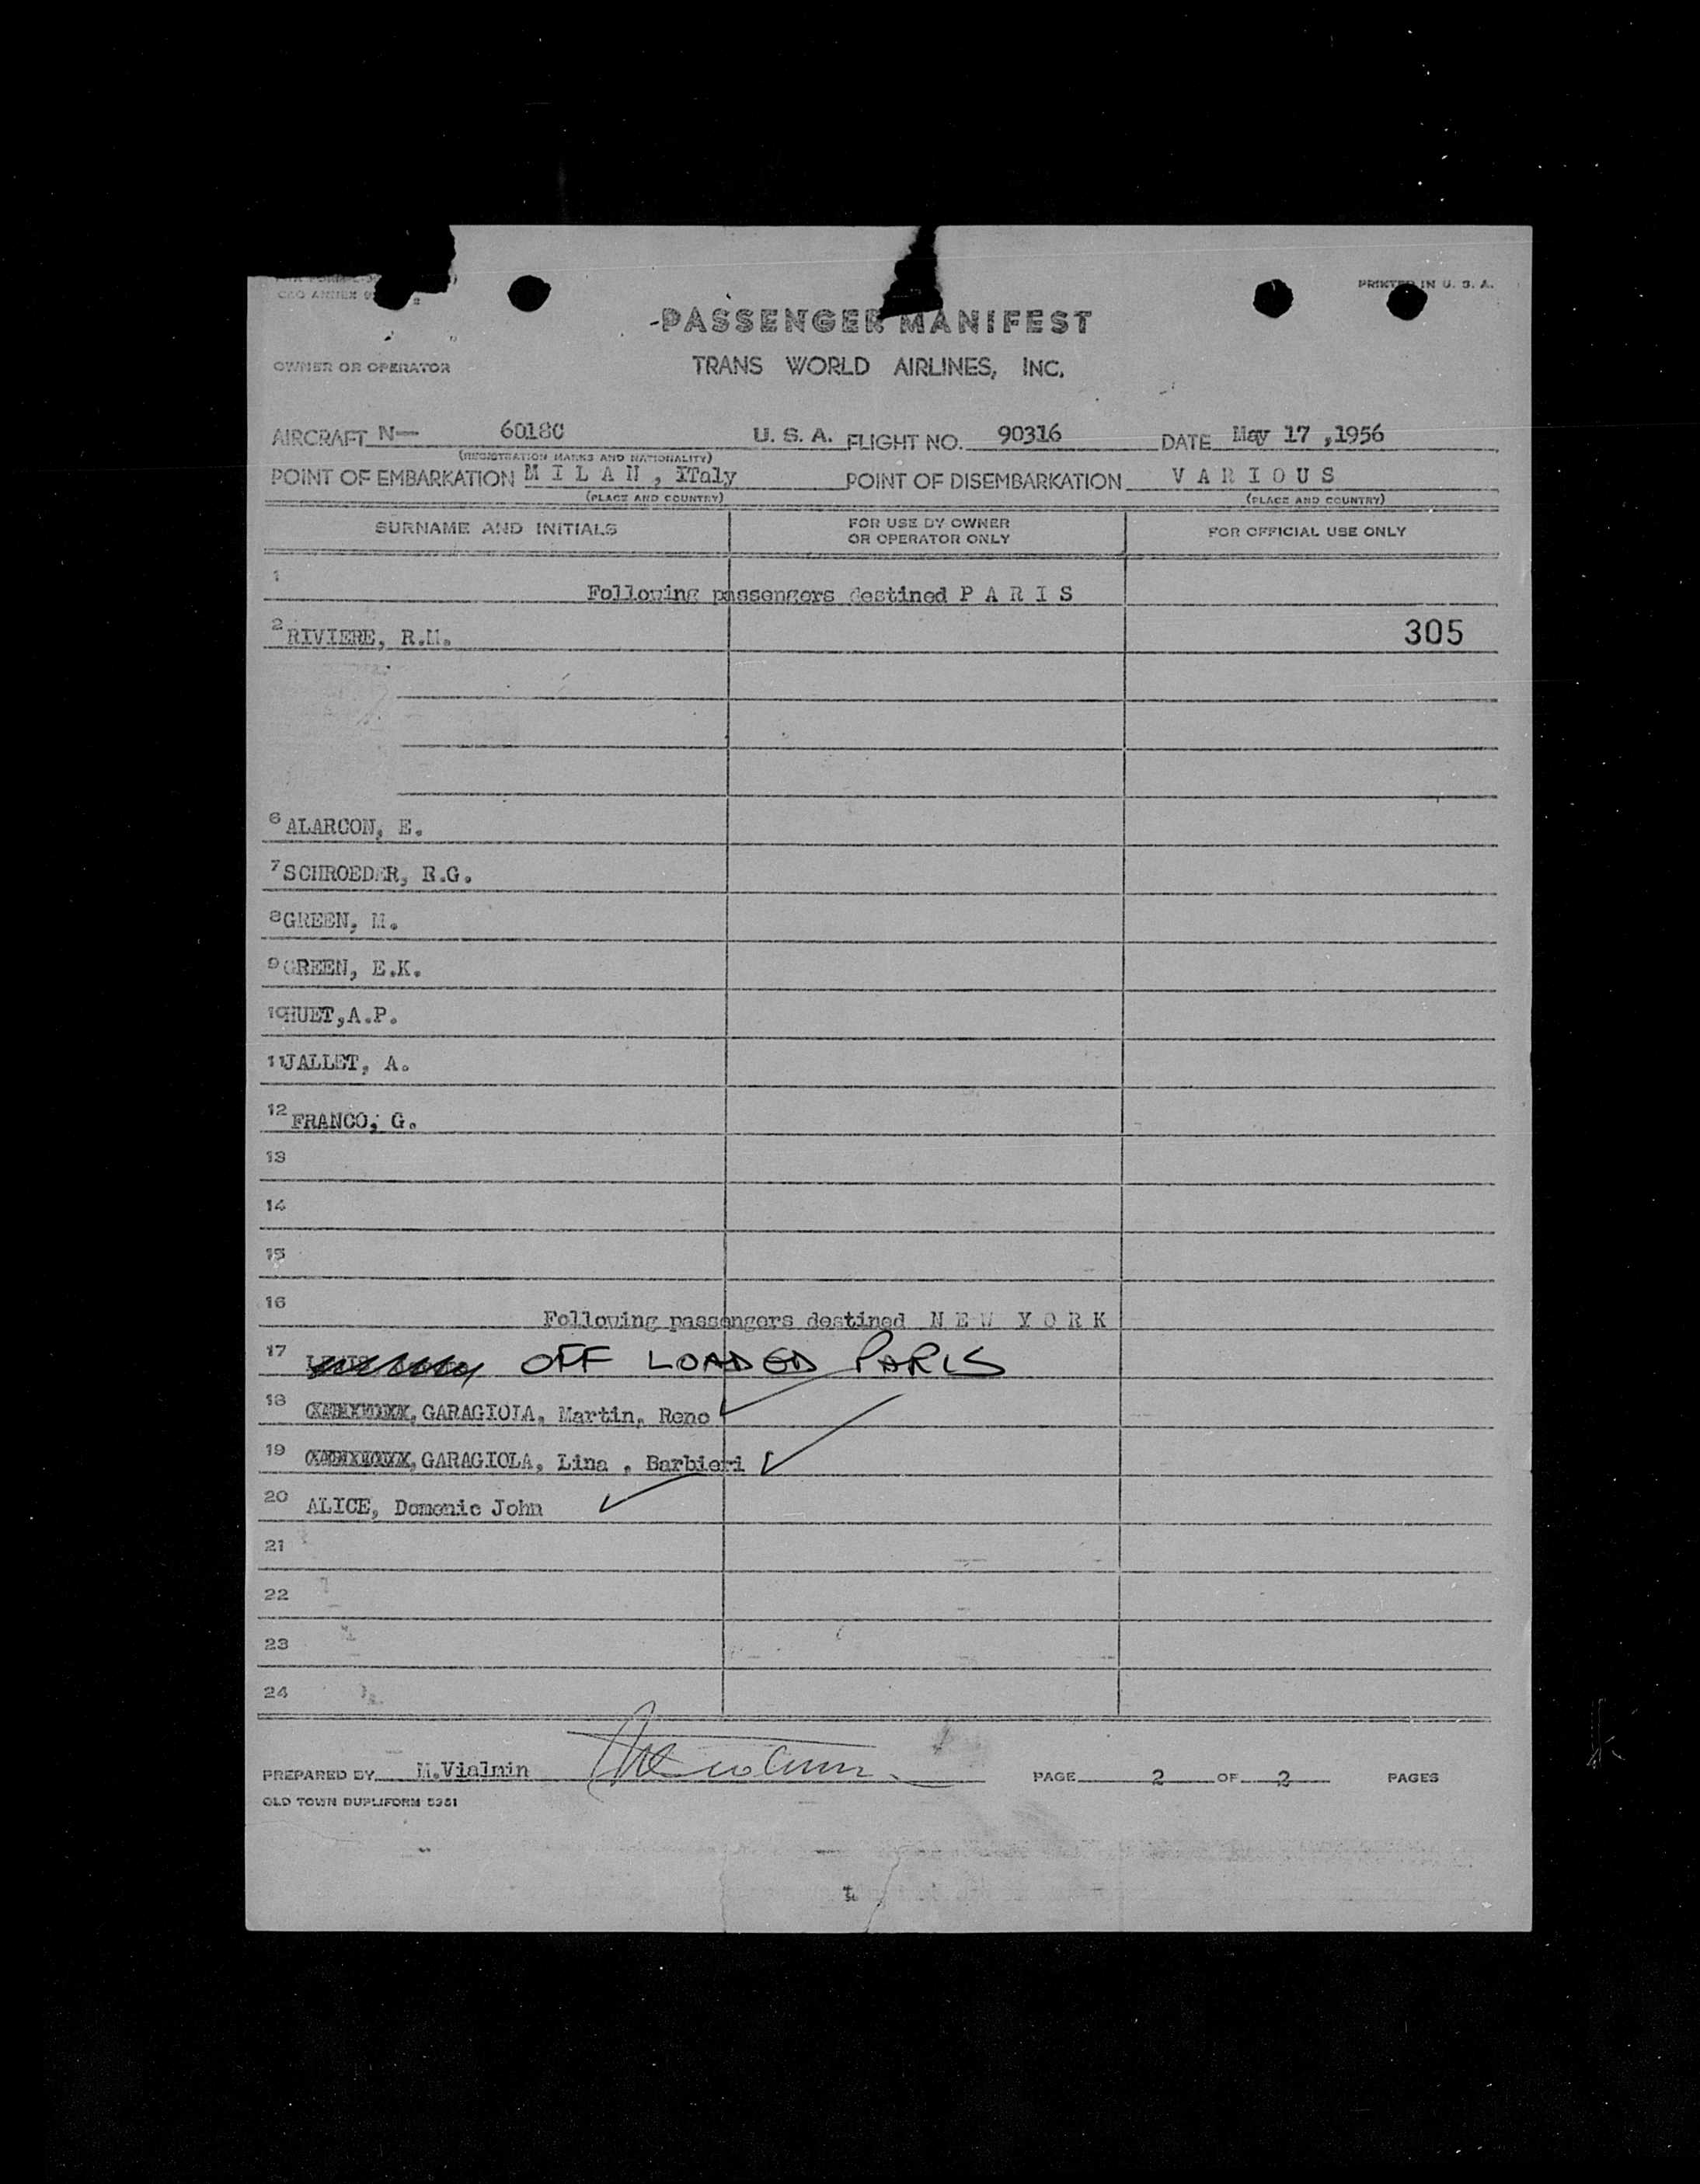 PRINTED IN U. S. A.
PASSENGER MANIFEST
OWNER OR OPERATOR TRANS WORLD AIRLINES, INC.
AIRCRAFT N— 6018C U. S. A. FLIGHT NO. 90316 DATE May 17 ,1956
(REGISTRATION MARKS AND NATIONALITY)
POINT OF EMBARKATION M I L A N , ITaly POINT OF DISEMBARKATION V A R I O U S
(PLACE AND COUNTRY) (PLACE AND COUNTRY)
SURNAME AND INITIALS FOR USE BY OWNER OR OPERATOR ONLY FOR OFFICIAL USE ONLY
1 Following passengers destined P A R I S
2 RIVIERE, R.M. 305
6 ALARCON, E.
7 SCHROEDER, E.G.
8 GREEN, M.
9 GREEN, E.K.
10 HUET,A.P.
11 JALLET, A.
12 FRANCO, G.
13
14
15
16 Following passengers destined N E W Y O R K
17 OFF LOADED PARIS
18 GARAGIOLA, Martin, Reno
19 GARAGIOLA, Lina , Barbieri
20 ALICE, Domenic John
21
22
23
24
PREPARED BY M.Vialmin PAGE 2 OF 2 PAGES
OLD TOWN DUPLIFORM 5251